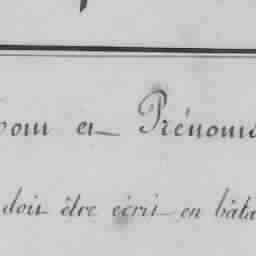 nom et Prénoms
doit être écrit en bâta